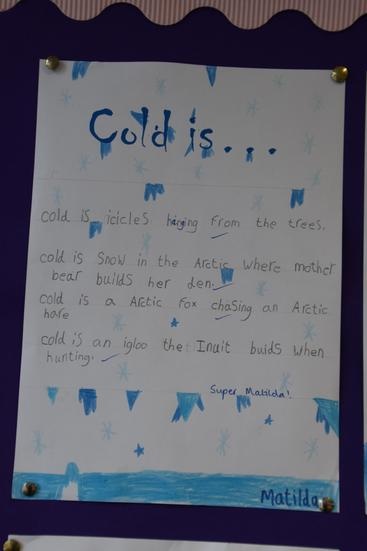 Cold is...
cold is icicles hanging from the trees.
cold is snow in the Arctic where mother
bear builds her den.
cold is a Arctic fox chasing an Arctic
hare
cold is an igloo the Inuit buids when
hunting.
Super Matilda!
Matilda